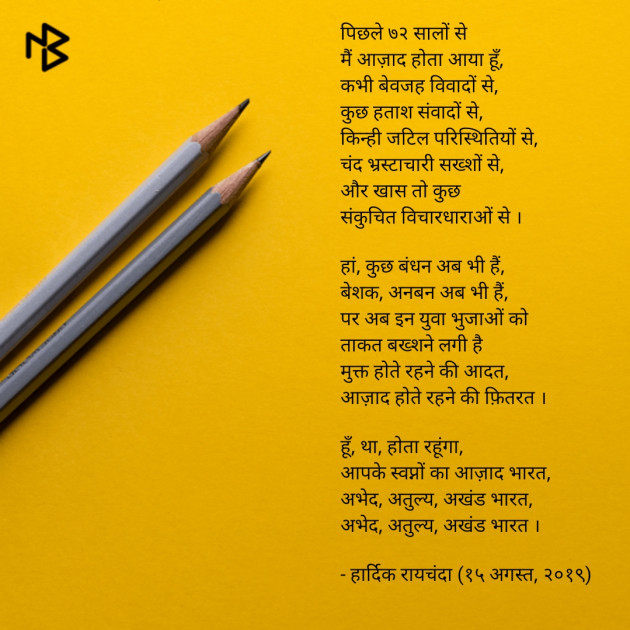 पिछले ७२ सालों से
मैं आज़ाद होता आया हूँ,
कभी बेवजह विवादों से,
कुछ हताश संवादों से,
किन्ही जटिल परिस्थितियों से,
चंद भ्रस्टाचारी सख्शों से,
और खास तो कुछ
संकुचित विचारधाराओं से ।
हां, कुछ बंधन अब भी हैं,
बेशक, अनबन अब भी हैं,
पर अब इन युवा भुजाओं को
ताकत बख्शने लगी है
मुक्त होते रहने की आदत,
आज़ाद होते रहने की फ़ितरत ।
हूँ, था, होता रहूंगा,
आपके स्वप्नों का आज़ाद भारत,
अभेद, अतुल्य, अखंड भारत,
अभेद, अतुल्य, अखंड भारत ।
- हार्दिक रायचंदा (१५ अगस्त, २०१९)